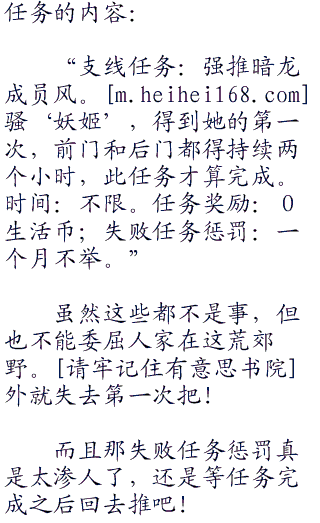 任务的内容：
“支线任务：强推暗龙
成员风。[m.heihei168.com]
骚‘妖姬’，得到她的第一
次，前门和后门都得持续两
个小时，此任务才算完成。
时间：不限。任务奖励：0
生活币；失败任务惩罚：一
个月不举。”
虽然这些都不是事，但
也不能委屈人家在这荒郊
野。[请牢记住有意思书院]
外就失去第一次把！
而且那失败任务惩罚真
是太渗人了，还是等任务完
成之后回去推吧！